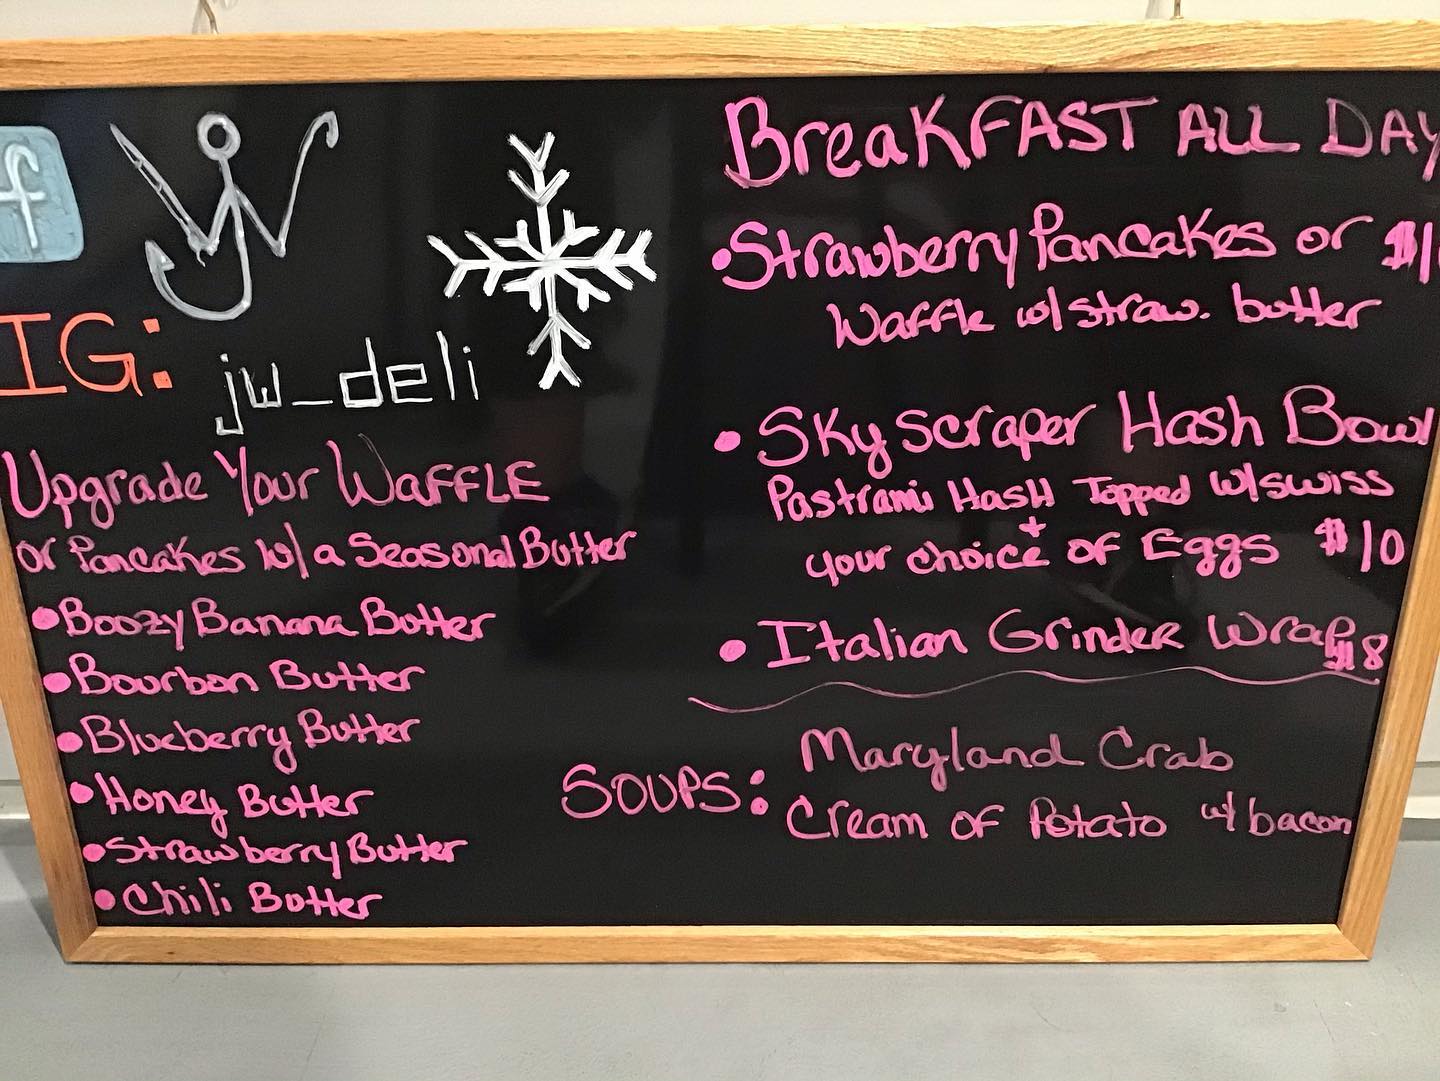 f
JW
IG: jw_deli
Upgrade Your WAFFLE
or Pancakes w/ a Seasonal Butter
• Boozy Banana Butter
• Bourbon Butter
• Blueberry Butter
• Honey Butter
• Strawberry Butter
• Chili Butter
BreaKFAST ALL DAY
• Strawberry Pancakes or
Waffle w/ straw. butter
• Sky scraper Hash Bowl
Pastrami Hash Topped w/ swiss
+
your choice of Eggs $10
• Italian Grinder Wrap $8
SOUPS: Maryland Crab
Cream of Potato w/ bacon